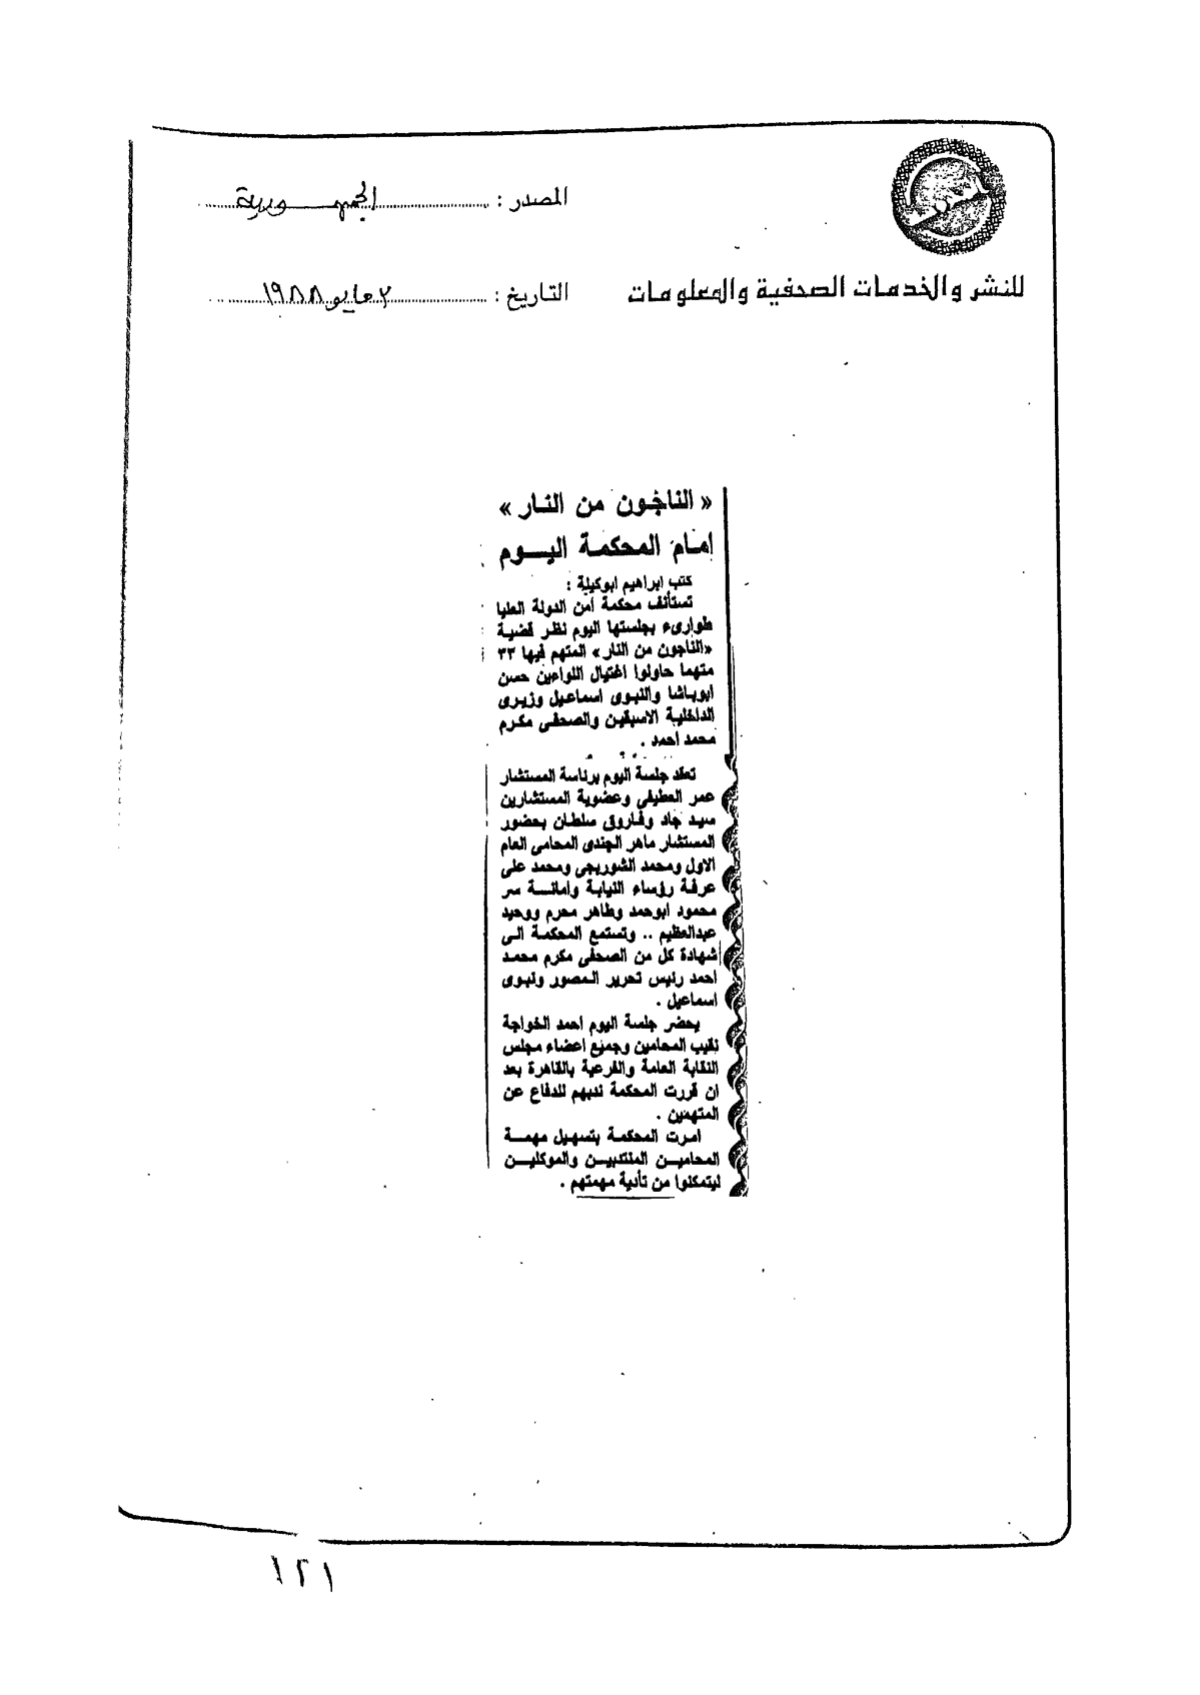 المصدر : الجمهورية
للنشر والخدمات الصحفية والمعلومات
التاريخ : ٢ مايو ١٩٨٨
« الناجون من النار »
امام المحكمة اليوم
كتب ابراهيم ابوكيلة :
تستأنف محكمة أمن الدولة العليا
طوارىء بجلستها اليوم نظر قضية
«الناجون من النار» المتهم فيها ٣٣
متهما حاولوا اغتيال اللواءين حسن
ابوباشا والنبوى اسماعيل وزيرى
الداخلية الاسبقين والصحفى مكرم
محمد احمد .
تعقد جلسة اليوم برئاسة المستشار
عمر العطيفى وعضوية المستشارين
سيد جاد وفاروق سلطان بحضور
المستشار ماهر الجندى المحامى العام
الاول ومحمد الشوربجى ومحمد على
عرفة رؤساء النيابة وامانة سر
محمود ابوحمد وطاهر محرم ووحيد
عبدالعظيم .. وتستمع المحكمة الى
شهادة كل من الصحفى مكرم محمد
احمد رئيس تحرير المصور ونبوى
اسماعيل .
يحضر جلسة اليوم احمد الخواجة
نقيب المحامين وجميع اعضاء مجلس
النقابة العامة والفرعية بالقاهرة بعد
ان قررت المحكمة ندبهم للدفاع عن
المتهمين .
امرت المحكمة بتسهيل مهمة
المحامين المنتدبين والموكلين
ليتمكنوا من تأدية مهمتهم .
١٢١